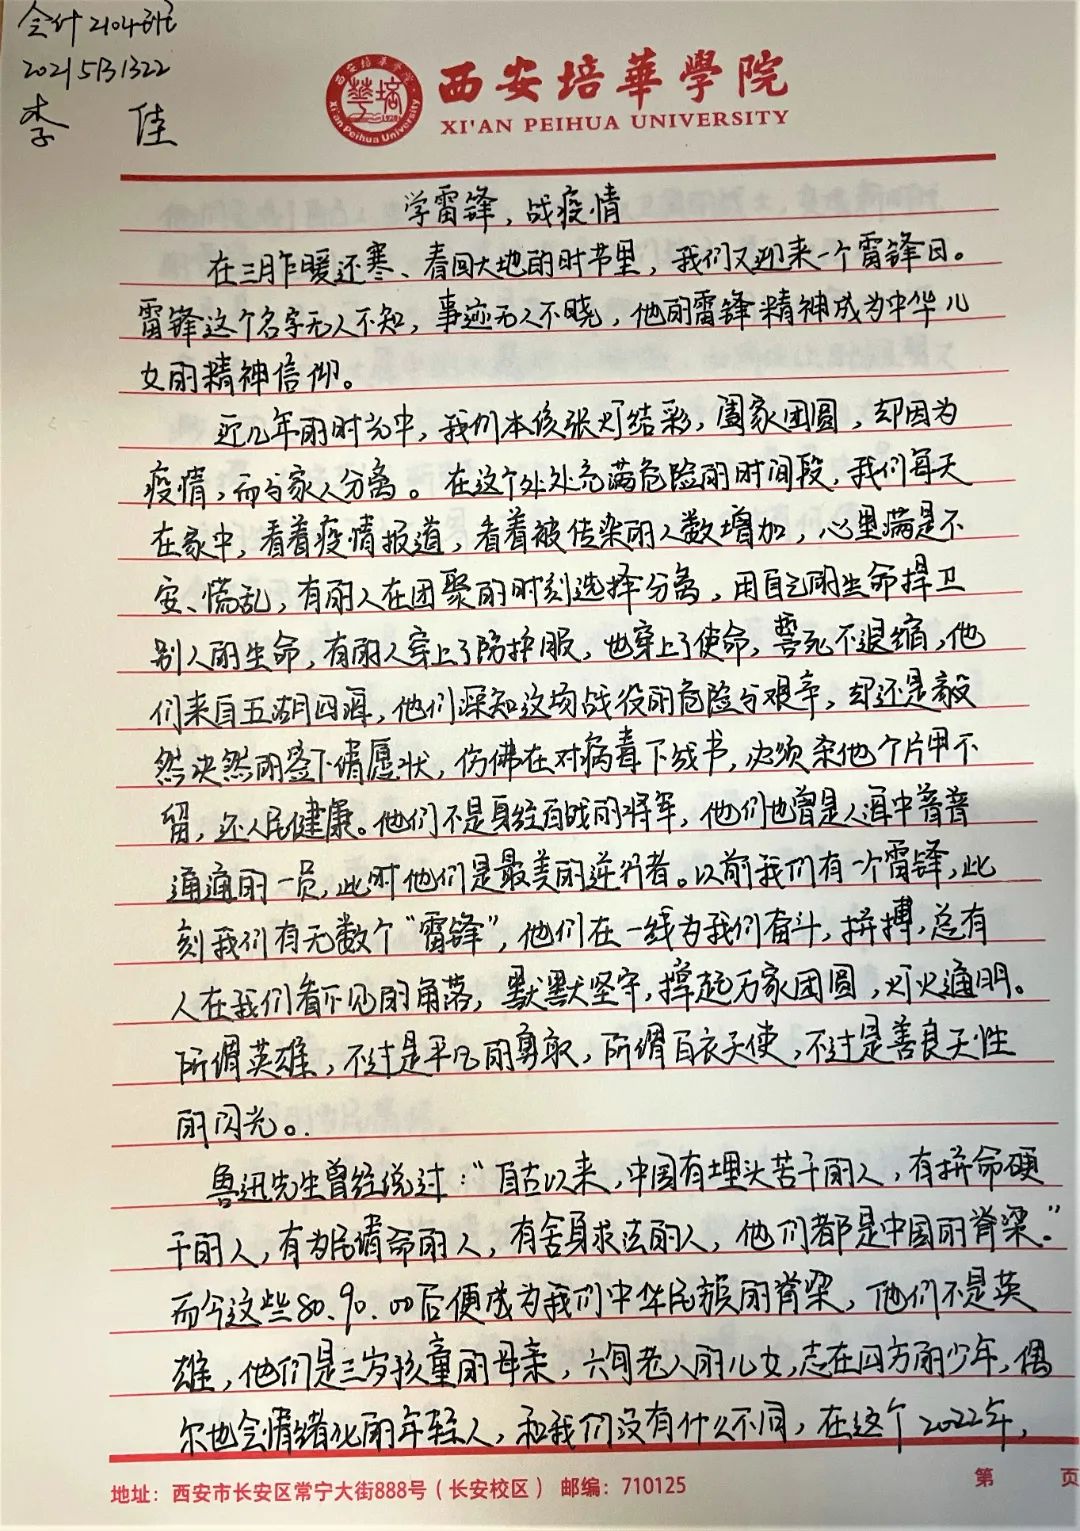 会计2104班
20215131322
李 佳
西安培華學院
XI'AN PEIHUA UNIVERSITY
西安培华学院
Xi'an Peihua University
学雷锋，战疫情
在三月乍暖还寒、春回大地的时节里，我们又迎来一个雷锋日。
雷锋这个名字无人不知，事迹无人不晓，他的雷锋精神成为中华儿
女的精神信仰。
近几年的时光中，我们本该张灯结彩，阖家团圆，却因为
疫情，而与家人分离。在这个处处充满危险的时间段，我们每天
在家中，看着疫情报道，看着被传染的人数增加，心里满是不
安、慌乱，有的人在团聚的时刻选择分离，用自己的生命捍卫
别人的生命，有的人穿上了防护服，也穿上了使命，誓死不退缩，他
们来自五湖四海，他们深知这场战役的危险与艰辛，却还是毅
然决然的签下请愿状，仿佛在对病毒下战书，必须杀他个片甲不
留，还人民健康。他们不是身经百战的将军，他们也曾是人海中普普
通通的一员，此时他们是最美的逆行者。以前我们有一个雷锋，此
刻我们有无数个“雷锋”，他们在一线为我们奋斗，拼搏，总有
人在我们看不见的角落，默默坚守，撑起万家团圆，灯火通明。
所谓英雄，不过是平凡的勇敢，所谓白衣天使，不过是善良天性
的闪光。
鲁迅先生曾经说过：“自古以来，中国有埋头苦干的人，有拼命硬
干的人，有为民请命的人，有舍身求法的人，他们都是中国的脊梁.”
而今这些80.90.00后便成为我们中华民族的脊梁，他们不是英
雄，他们是三岁孩童的母亲，六旬老人的儿女，志在四方的少年，偶
尔也会情绪化的年轻人，和我们没有什么不同，在这个2022年，
地址：西安市长安区常宁大街888号（长安校区） 邮编：710125
第 页